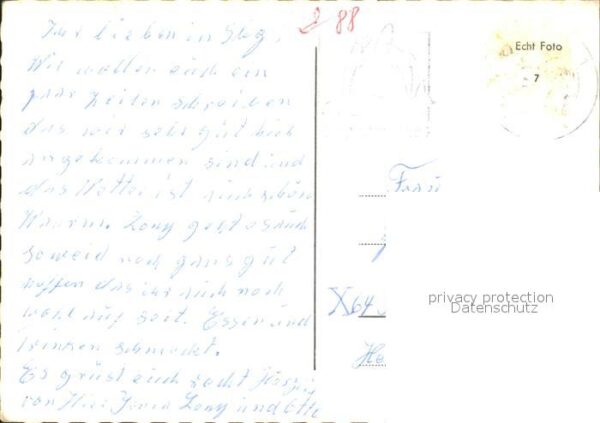 Ihr lieben in Sbg,
Wir wollen euch ein
paar Zeilen schreiben
das wir sehr gut hier
angekommen sind und
das Wetter ist auch schön
Waarm. Lony geht es auch
soweid noch gans gut
hoffen das ihr auch noch
wohl auf seit. Essen und
trinken schmeckt.
Es grüst euch recht Herzig
von Hier Lony und Otto
88
Echt Foto
7
Frau
X64
He
privacy protection
Datenschutz